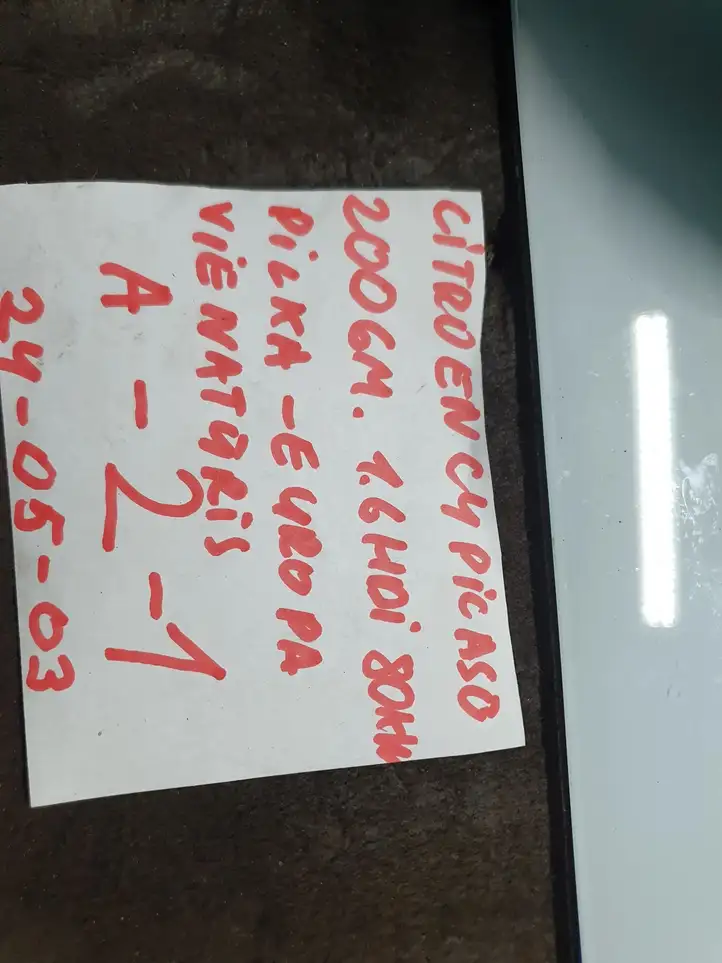 CITROEN C4 PICASO
2006M. 1.6HDI 80KW
PILKA - EUROPA
VIENATURIS
A-2-1
24-05-03